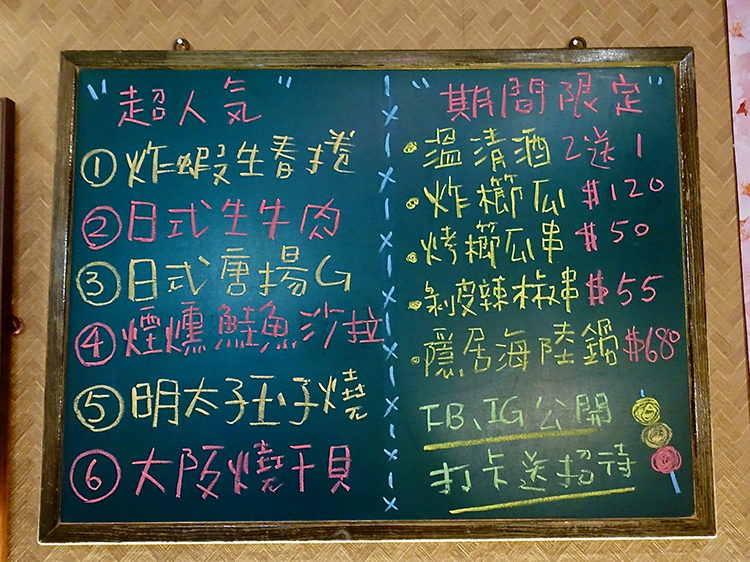 "超人気"
①炸蝦生春捲
②日式生牛肉
③日式唐揚G
④煙燻鮭魚沙拉
⑤明太子玉子燒
⑥大阪燒干貝
"期間限定"
・溫清酒 2送1
・炸櫛瓜 $120
・烤櫛瓜串 $50
・剝皮辣椒串 $55
・隱居海陸鍋 $680
FB、IG公開
打卡送招待